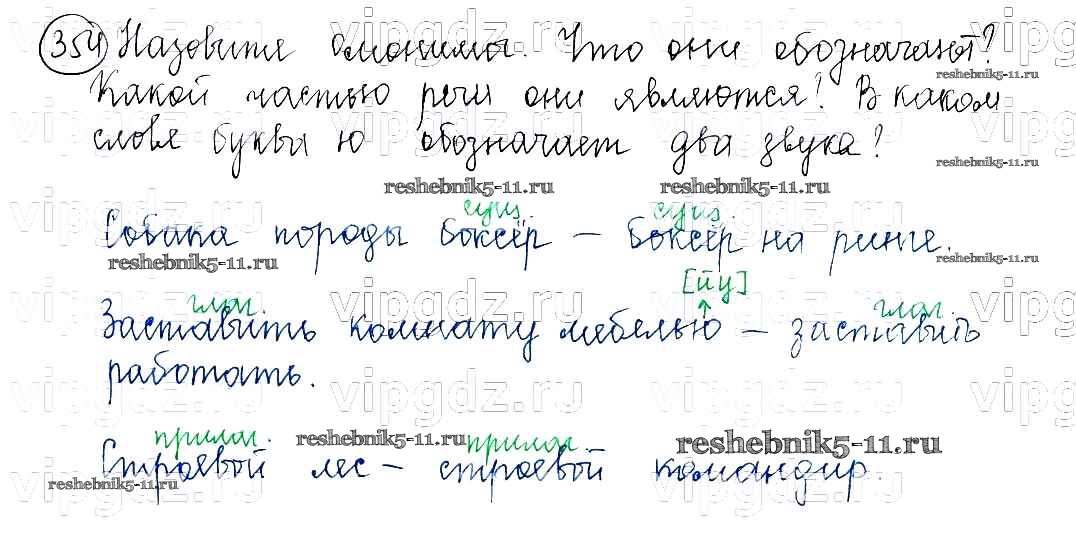 354 Назовите омонимы. Что они обозначают?
Какой частью речи они являются? В каком
слове буквы ю обозначает два звука?
сущ. сущ.
Собака породы боксёр – боксёр на ринге.
[йу]
глаг. глаг.
Заставить комнату мебелью – заставить
работать.
прилаг. прилаг.
Строевой лес – строевой командир.
vipgdz.ru
reshebnik5-11.ru